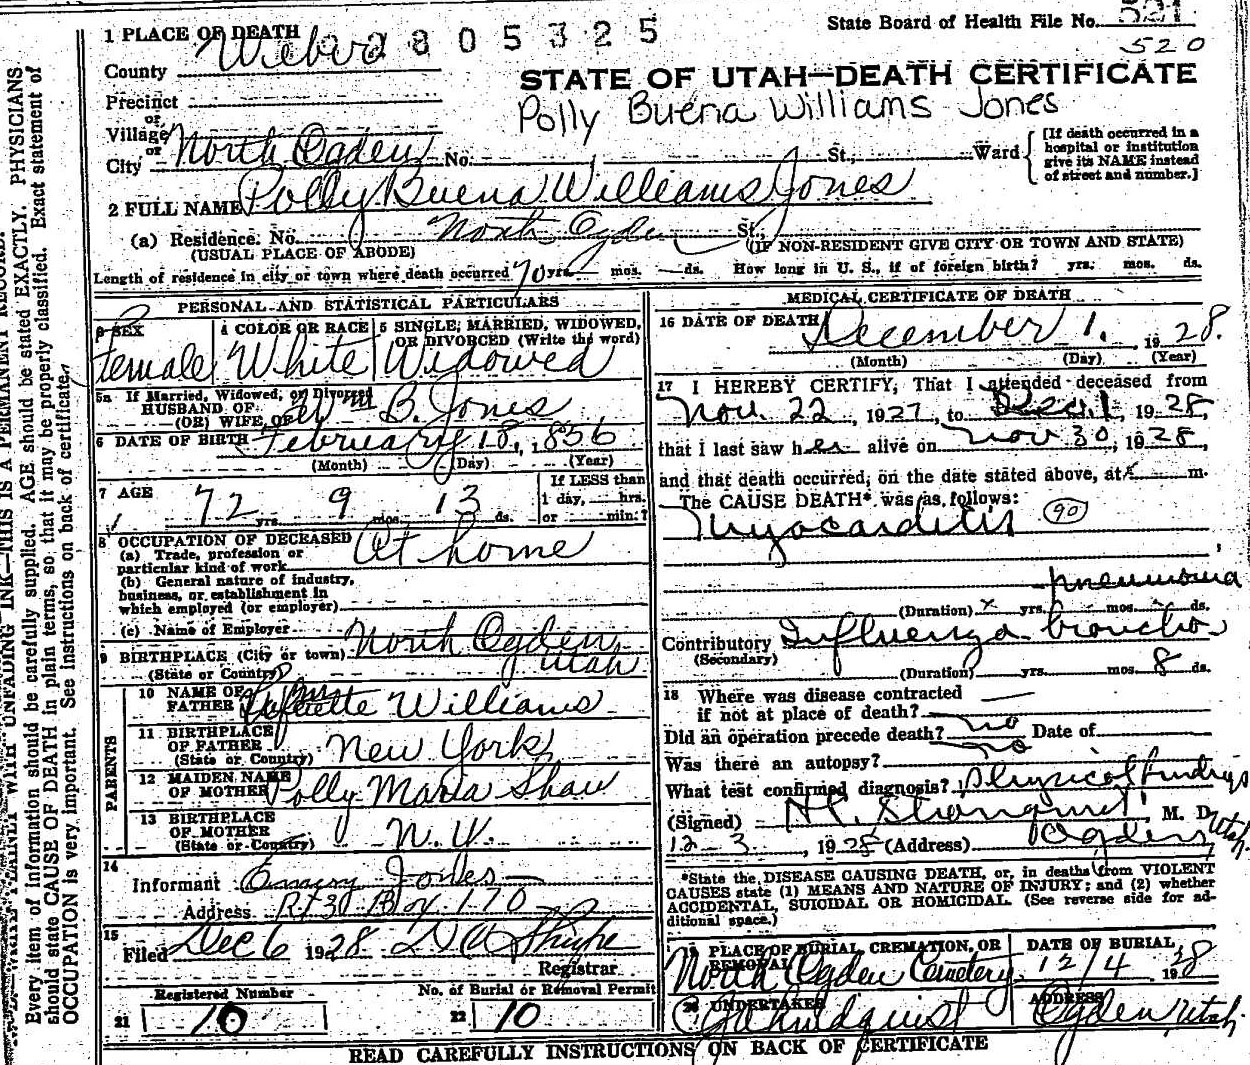 1 PLACE OF DEATH
2 8 0 5 3 2 5
State Board of Health File No. 521
520
County Weber
STATE OF UTAH—DEATH CERTIFICATE
Precinct
Polly Buena Williams Jones
or
Village
or
City North Ogden No. St., Ward
[If death occurred in a
hospital or institution
give its NAME instead
of street and number.]
2 FULL NAME Polly Buena Williams Jones
(a) Residence. No. North Ogden St.,
(USUAL PLACE OF ABODE) (IF NON-RESIDENT GIVE CITY OR TOWN AND STATE)
Length of residence in city or town where death occurred 70 yrs. mos. ds. How long in U. S., if of foreign birth? yrs. mos. ds.
PERSONAL AND STATISTICAL PARTICULARS
3 SEX
female
4 COLOR OR RACE
White
5 SINGLE, MARRIED, WIDOWED,
OR DIVORCED (Write the word)
Widowed
5a If Married, Widowed, or Divorced
HUSBAND OF
(OR) WIFE OF Wm B. Jones
6 DATE OF BIRTH February 18, 1856
(Month) (Day) (Year)
7 AGE
72 yrs. 9 mos. 13 ds.
If LESS than
1 day, hrs.
or min.?
8 OCCUPATION OF DECEASED
(a) Trade, profession or
particular kind of work At home
(b) General nature of industry,
business, or establishment in
which employed (or employer)
(c) Name of Employer
9 BIRTHPLACE (City or town) North Ogden
(State or Country) Utah
PARENTS
10 NAME OF
FATHER Williams
11 BIRTHPLACE
OF FATHER
(State or Country) New York
12 MAIDEN NAME
OF MOTHER Polly Maria Shaw
13 BIRTHPLACE
OF MOTHER
(State or Country) N. Y.
14
Informant Jones
Address Rt 3 Box 170
15
Filed Dec 6 1928
Registrar
Registered Number
21 10
No. of Burial or Removal Permit
22 10
MEDICAL CERTIFICATE OF DEATH
16 DATE OF DEATH December 1, 1928.
(Month) (Day) (Year)
17 I HEREBY CERTIFY, That I attended deceased from
Nov. 22, 1927, to Dec. 1, 1928,
that I last saw her alive on Nov 30, 1928,
and that death occurred, on the date stated above, at m.
The CAUSE DEATH* was as follows:
Myocarditis 90
pneumonia
(Duration) yrs. mos. ds.
Contributory Influenza broncho
(Secondary)
(Duration) yrs. mos. 8 ds.
18 Where was disease contracted
if not at place of death?
Did an operation precede death? no Date of
Was there an autopsy? no
What test confirmed diagnosis? Physical findings
(Signed) M. D.
12-3, 1928 (Address) Ogden, Utah.
*State the DISEASE CAUSING DEATH, or, in deaths from VIOLENT
CAUSES state (1) MEANS AND NATURE OF INJURY; and (2) whether
ACCIDENTAL, SUICIDAL OR HOMICIDAL. (See reverse side for ad-
ditional space.)
19 PLACE OF BURIAL, CREMATION, OR
REMOVAL
North Ogden Cemetery
DATE OF BURIAL
12/4 1928
20 UNDERTAKER
Lindquist
ADDRESS
Ogden, Utah.
READ CAREFULLY INSTRUCTIONS ON BACK OF CERTIFICATE
WITH UNFADING INK—THIS IS A PERMANENT RECORD.
Every item of information should be carefully supplied. AGE should be stated EXACTLY. PHYSICIANS
should state CAUSE OF DEATH in plain terms, so that it may be properly classified. Exact statement of
OCCUPATION is very important. See Instructions on back of certificate.